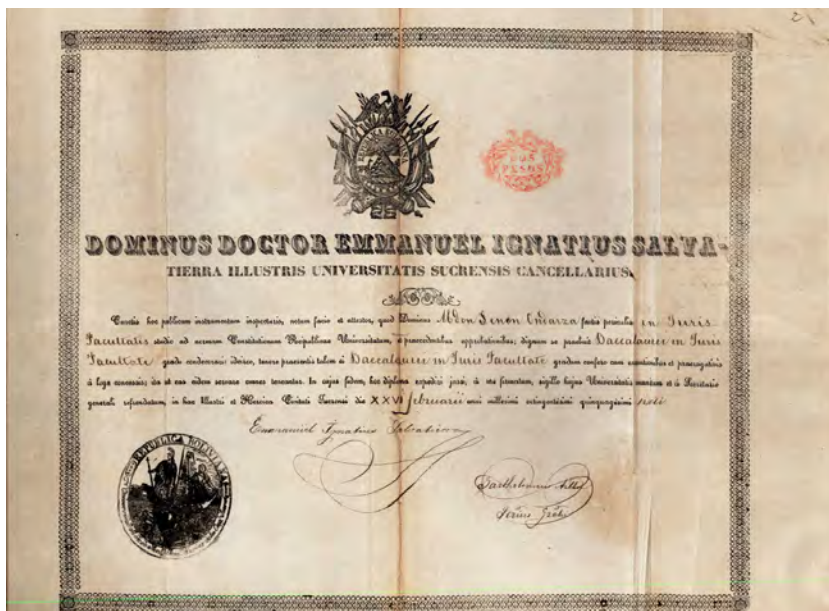 2
REPUBLICA BOLIVIANA
DOS
PESOS
DOMINUS DOCTOR EMMANUEL IGNATIUS SALVA-
TIERRA ILLUSTRIS UNIVERSITATIS SUCRENSIS CANCELLARIUS.
Cunctis hoc publicum instrumentum inspecturis, notum facio et attestor, quod Dominus Zenon factis periculis in Juris
Facultatis studio ad normam Constitutionum Reipublicae Universitatum, à praecedentibus approbationibus; dignum se praebuit Baccalaurei in Juris
Facultate gradu condecorari: ideirco, tenore praesentis talem ei Baccalaurei in Juris Facultate gradum confero cum exemtionibus et praerogativis
à lege concessis; ita ut eas eidem servare omnes teneantur. In cujus fidem, hoc diploma expediri jussi, à me firmatum, sigillo hujus Universitatis munitum et à Secretario
generali refrendatum, in hac Illustri et Heroica Civitati Sucrensi die XXVI februarii anni millesimi octingentesimi quinquagesimi
Emmanuel Ignatius Salvatierra
REPUBLICA BOLIVIANA